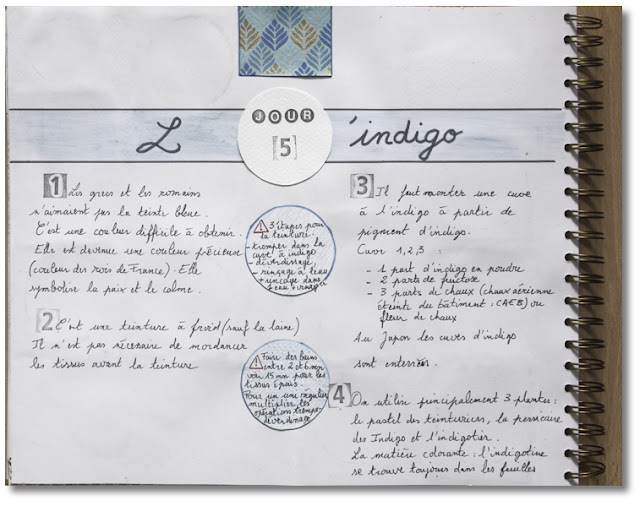 JOUR
[5]
L 'indigo
1 Les grecs et les romains
n'aimaient pas la teinte bleue.
C'est une couleur difficile à obtenir.
Elle est devenue une couleur précieuse
(couleur des rois de France). Elle
symbolise la paix et le calme.
2 C'est une teinture à froid (sauf la laine)
Il n'est pas nécessaire de mordancer
les tissus avant la teinture
3 étapes pour
la teinture:
- tremper dans la
cuve à indigo
- déverdissage,
- rinçage à l'eau
+ rinçage dans
l'eau + vinaigre
Faire des bains
entre 2 et 6 mn
voir 15 mn pour les
tissus épais.
Pour un régulier
multiplier les
opérations trempe-
déverdissage
3 Il faut monter une cuve
à l'indigo à partir de
pigment d'indigo.
Cuve 1,2,3
- 1 part d'indigo en poudre
- 2 parts de fructose
- 3 parts de chaux (chaux aérienne
éteinte du bâtiment : CAEB) ou
fleur de chaux
Au Japon les cuves d'indigo
sont enterrées.
4 On utilise principalement 3 plantes :
le pastel des teinturiers, la persicaire
des Indigo et l'indigotier.
La matière colorante : l'indigotine
se trouve toujours dans les feuilles